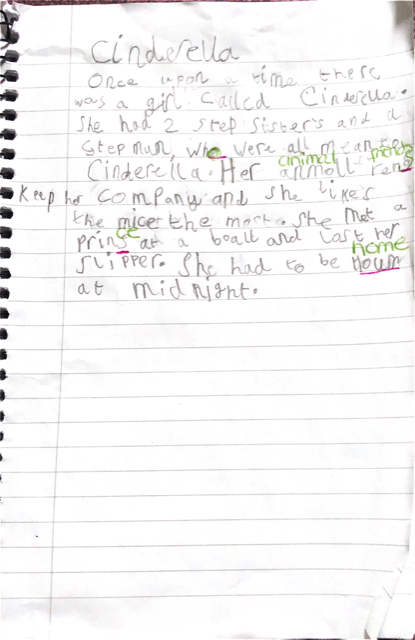 Cinderella
Once upon a time there
was a girl called Cinderella.
She had 2 step sister's and a
step mum, who were all mean to
animal friends
Cinderella. Her anmoll rens
Keep her company and she likes
the mice the most. She met a
ce
prins at a boall and last her
home
slipper. She had to be houm
at midnight.